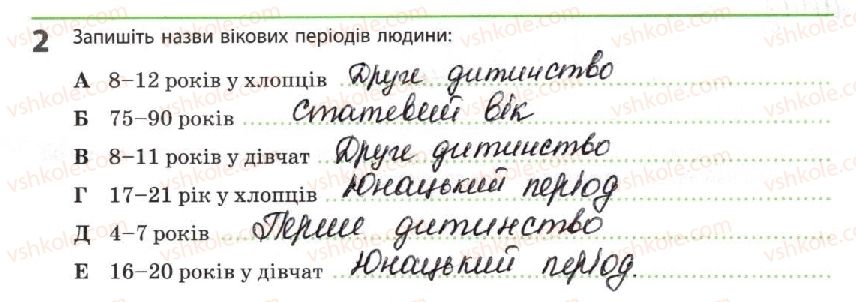 2 Запишіть назви вікових періодів людини:
А 8–12 років у хлопців Друге дитинство
Б 75–90 років Статевий вік
В 8–11 років у дівчат Друге дитинство
Г 17–21 рік у хлопців Юнацький період
Д 4–7 років Перше дитинство
Е 16–20 років у дівчат Юнацький період.